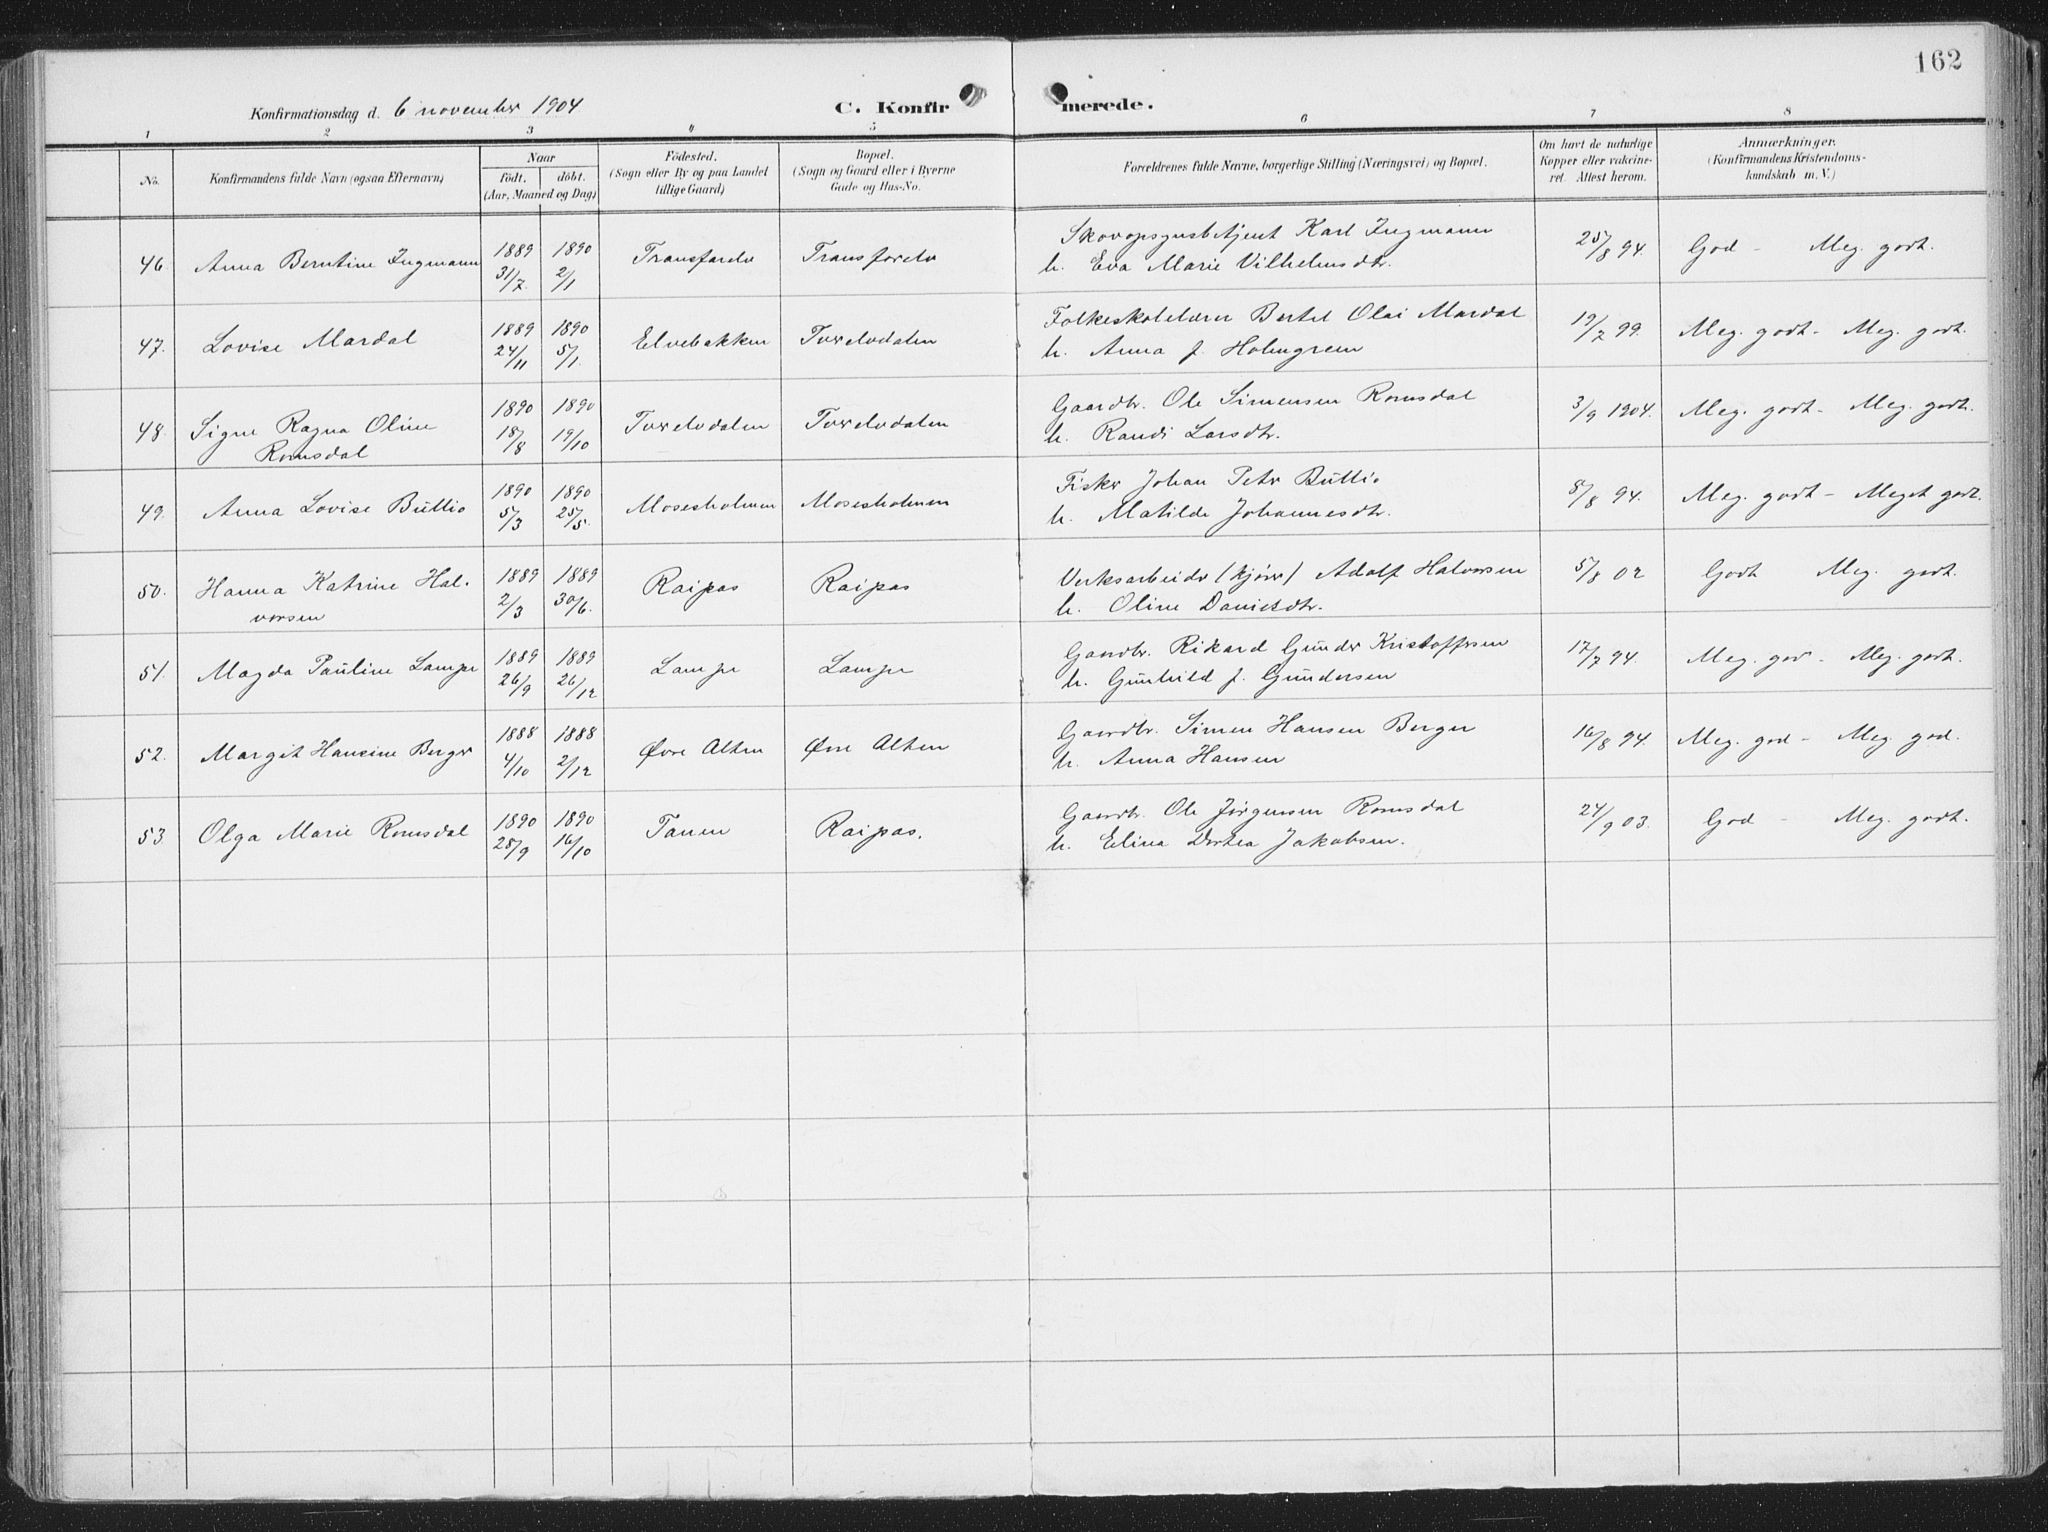 162
Konfirmationsdag d. 6 november 1904 C. Konfirmerede.
1 2 3 4 5 6 7 8
No. Konfirmandens fulde Navn (ogsaa Efternavn) Naar födt. döbt. (Aar, Maaned og Dag) Födested. (Sogn eller By og paa Landet tillige Gaard) Bopæl. (Sogn og Gaard eller i Byerne Gade og Hus-No. Forældrenes fulde Navne, borgerlige Stilling (Næringsvei) og Bopæl. Om havt de naturlige Kopper eller vakcineret. Attest herom. Anmærkninger. (Konfirmandens Kristendomskundskab m. V.)
46. Anna Berntine Ingmann 1889 31/7 1890 2/1 Transfarelv Transfarelv Skovopsynsbetjent Karl Ingmann 25/8 94. God - Meg. godt.
h. Eva Marie Vilhelmsdtr.
47. Lovise Mardal 1889 24/11 1890 5/1. Elvebakken Tverelvdalen Folkeskolelærer Bertel Olai Mardal 19/7 99. Meg. godt - Meg. godt.
h. Anna f. Holmgreen
48. Signe Ragna Oline 1890 18/8 1890 19/10 Tverelvdalen Tverelvdalen Gaardbr. Ole Simensen Romsdal 3/9 1904. Meg. godt - Meg. godt.
Romsdal h. Randi Larsdtr.
49. Anna Lovise Buttio 1890 5/3 1890 25/5. Mosesholmen Mosesholmen Fisker Johan Peter Buttio 8/8 94. Meg. godt - Meget godt.
h. Matilde Johannesdtr.
50. Hanna Katrine Hal- 1889 2/3 1889 30/6. Raipas Raipas Verksarbeider (kjører) Adolf Halvorsen 5/8 02 Godt Meg. godt.
vorsen h. Oline Danielsdtr.
51. Magda Pauline Lampe 1889 26/9 1889 26/12 Lampe Lampe Gaardbr. Rikard Gunder Kristoffersen 17/7 94. Meg. god - Meg. godt.
h. Gunhild f. Gundersen
52. Margit Hansine Berger 1888 4/10 1888 2/12 Øvre Alten Øvre Alten Gaardbr. Simen Hansen Berger 16/8 94. Meg. god - Meg. god.
h. Anna Hansen
53. Olga Marie Romsdal 1890 28/9 1890 16/10 Tanen Raipas. Gaardbr. Ole Jørgensen Romsdal 24/9 03. God - Meg. godt.
h. Elina Dortea Jakobsen.